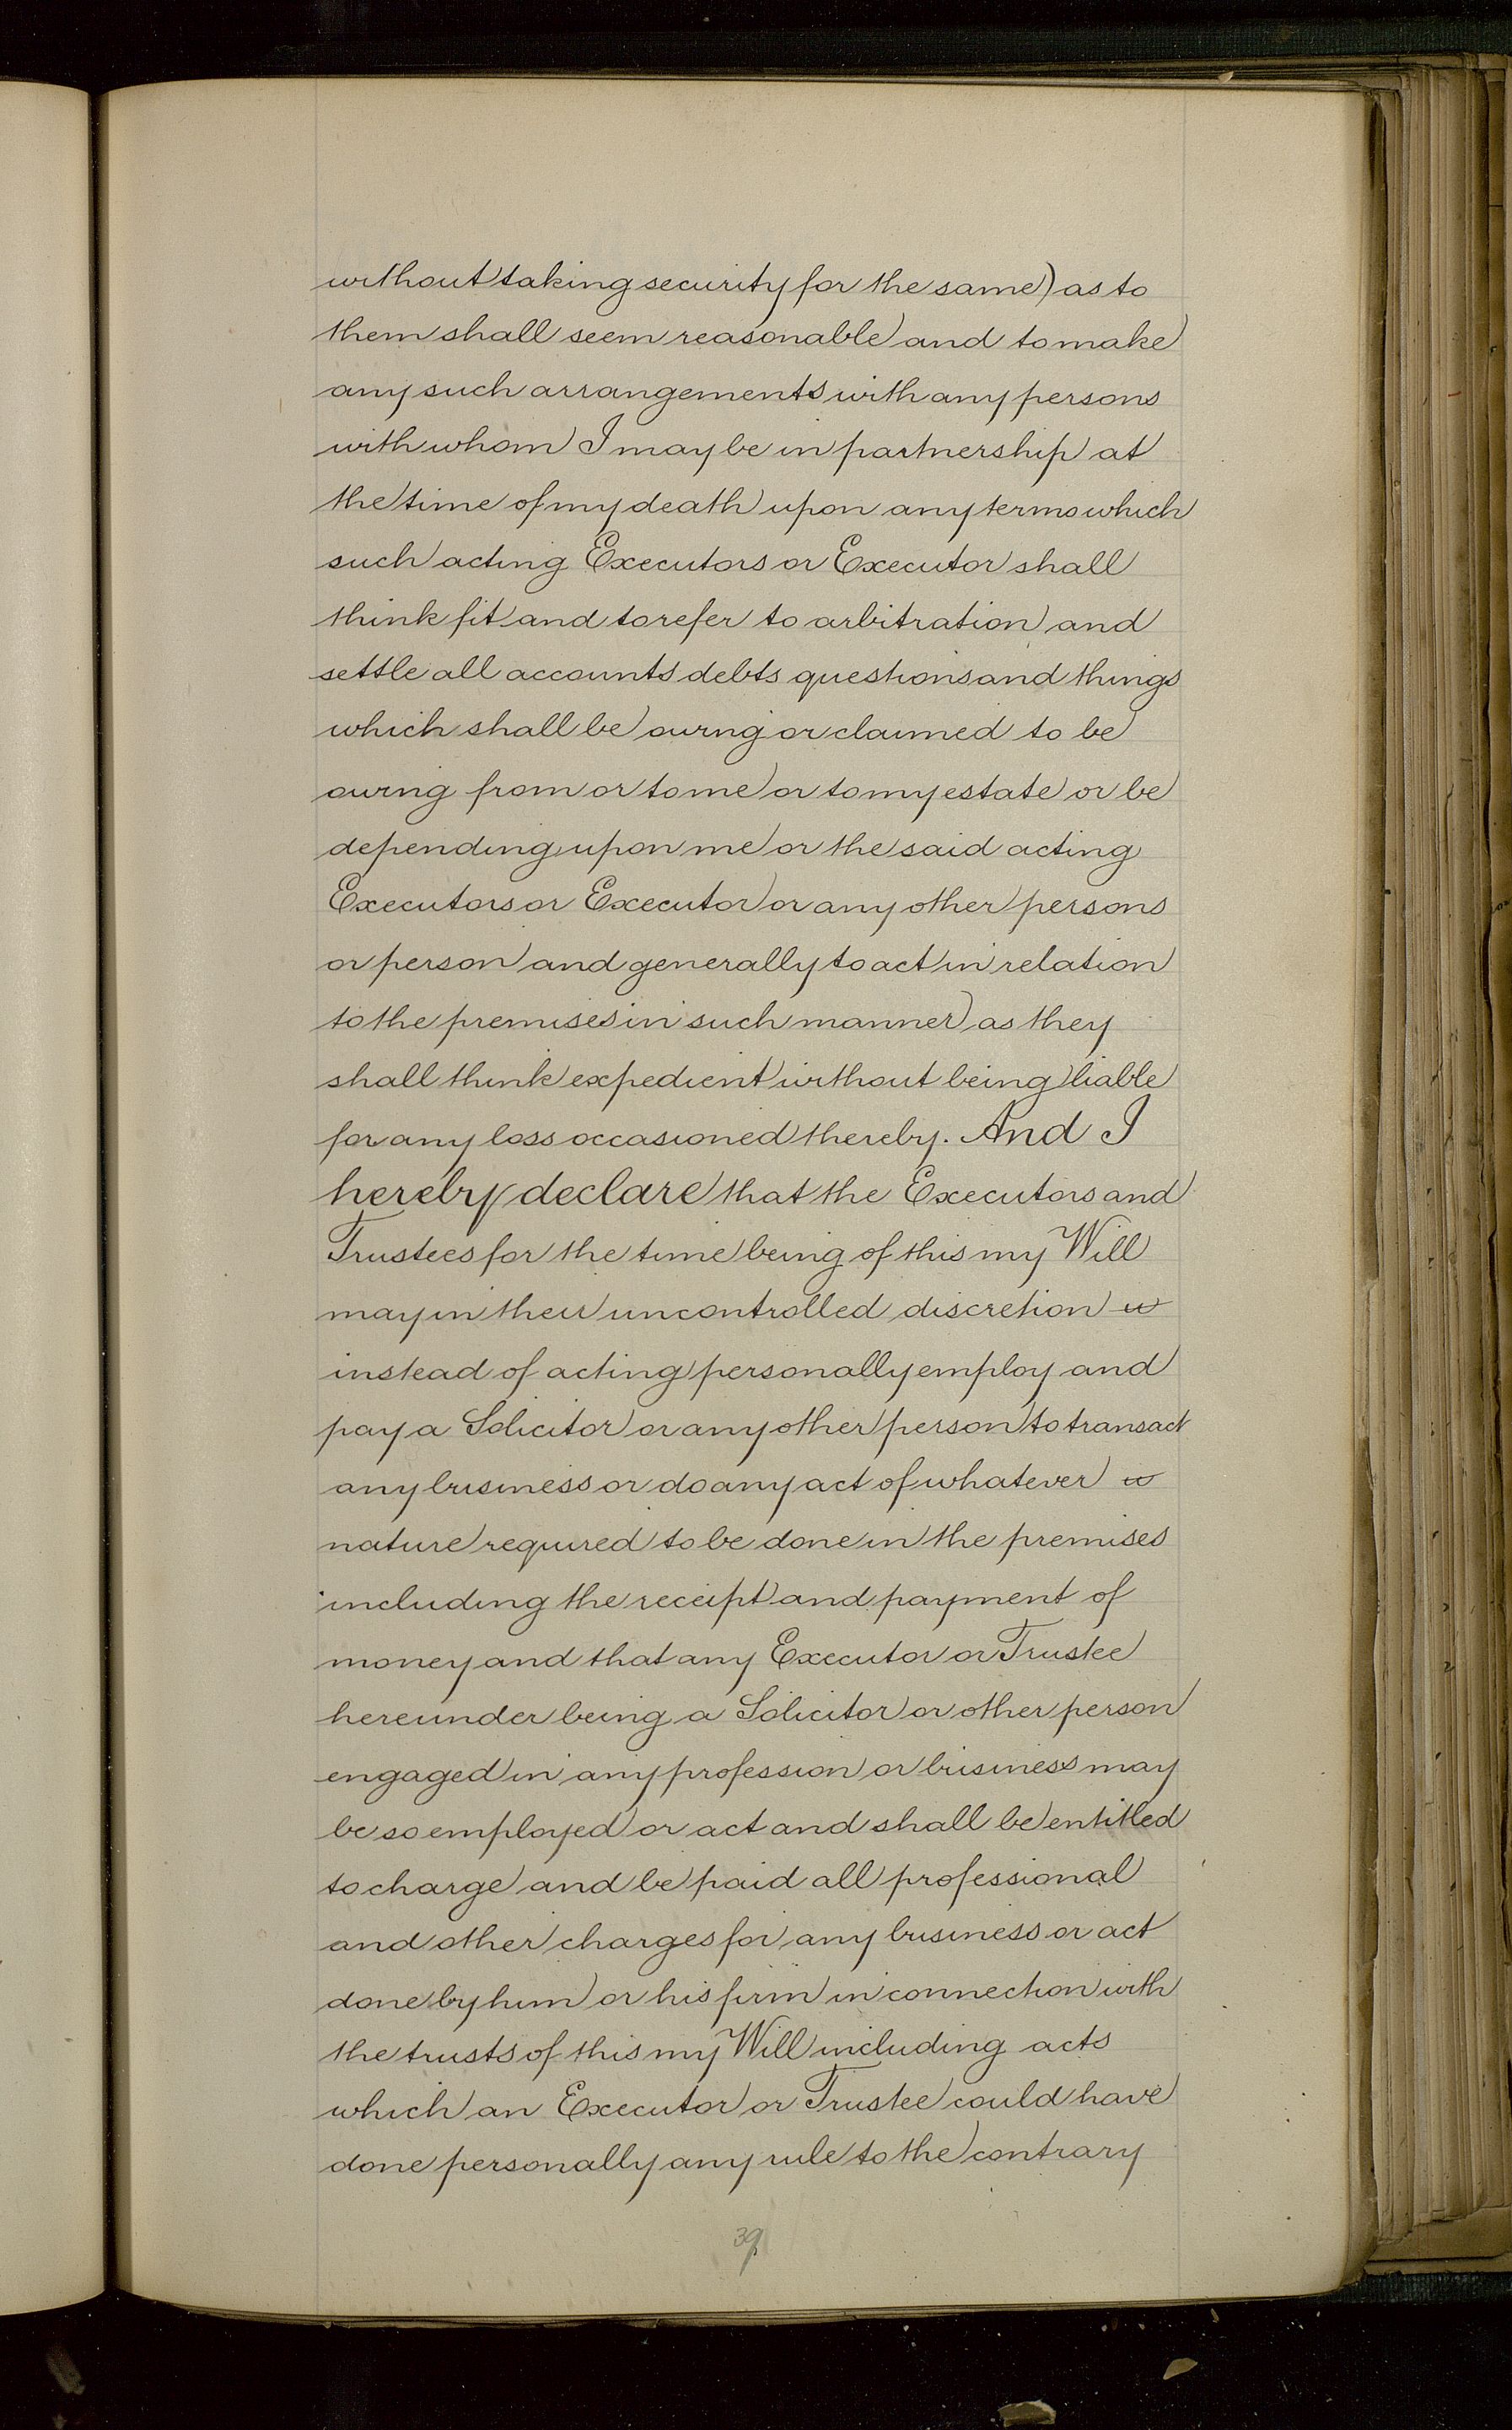 without taking security for the same) as to
them shall seem reasonable and to make
any such arrangements with any persons
with whom I may be in partnership at
the time of my death upon any terms which
such acting Executors or Executor shall
think fit and to refer to arbitration and
settle all accounts debts questions and things
which shall be owing or claimed to be
owing from or to me or to my estate or be
depending upon me or the said acting
Executors or Executor or any other persons
or person and generally to act in relation
to the premises in such manner as they
shall think expedient without being liable
for any loss occasioned thereby. And I
hereby declare that the Executors and
Trustees for the time being of this my Will
may in their uncontrolled discretion
instead of acting personally employ and
pay a Solicitor or any other person to transact
any business or do any act of whatever
nature required to be done in the premises
including the receipt and payment of
money and that any Executor or Trustee
hereunder being a Solicitor or other person
engaged in any profession or business may
be so employed or act and shall be entitled
to charge and be paid all professional
and other charges for any business or act
done by him or his firm in connection with
the trusts of this my Will including acts
which an Executor or Trustee could have
done personally any rule to the contrary
39